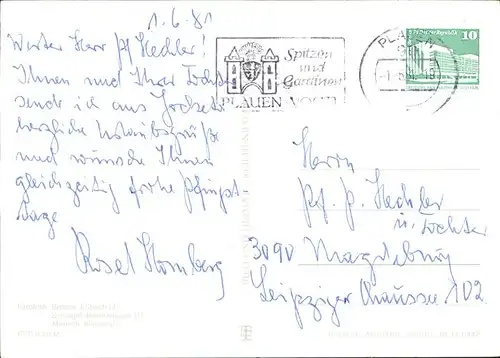 1.6.81
Werter Herr Pf Hechler!
Ihnen und Ihrer Tochter
sende ich aus Jocketa
herzliche Urlaubsgrüße
und wünsche Ihnen
gleichzeitig frohe Pfingst
tage
Rosel Homberg
Spitzen
und
Gardinen
PLAUEN VOGTL
PLAUEN
10
Herrn
Pf. Hechler
u. Tochter
3090 Magdeburg
Leipziger Chaussee 102